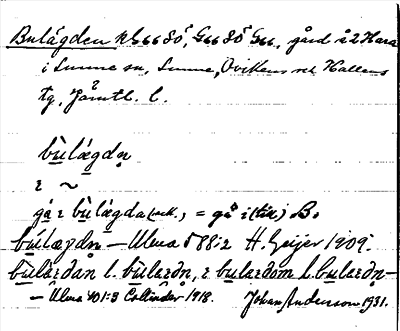 Bulägden kb 6680, 6680 566, gård å 2 Hara
i Sunne sn, Sunne, Ovikens och Hallens
tg, Jämtl. l.
bùlägdṇ
ɛ ~
gå ɛ bùlägda (vok.), = gå i (till) B.
búlægdn – Ulma 588:2 H. Geijer 1909.
bùlärdån l. bùlardn, ɛ bulardom l. bulardn –
– Ulma 401:3 Collinder 1918. Johan Anderson 1931.